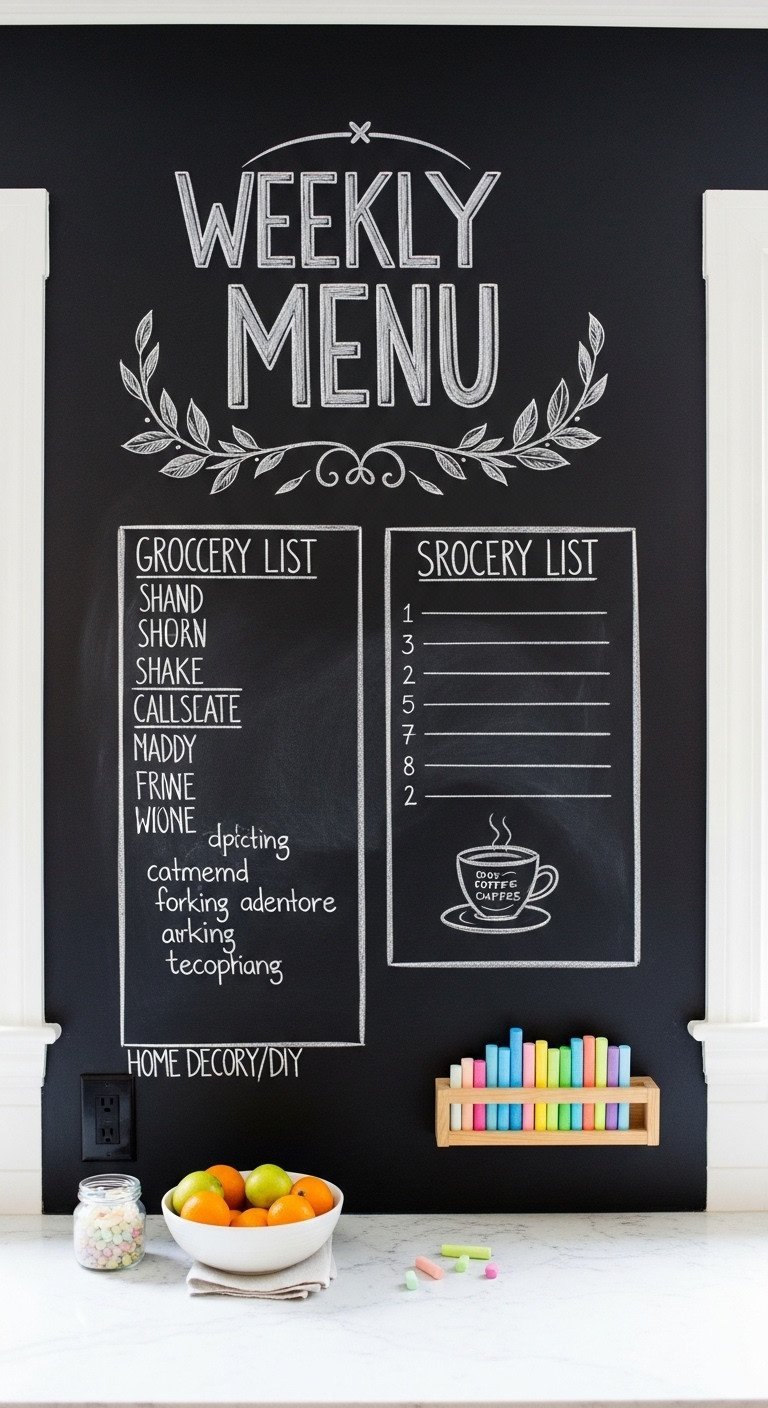 WEEKLY
MENU
GROCCERY LIST
SHAND
SHORN
SHAKE
CALLSEATE
MADDY
FRINE
WIONE
dpicting
catmemd
forking adentore
arking
tecophiang
HOME DECORY/DIY
SROCERY LIST
1
3
2
5
7
8
2
COOS
COTTEE
CMPFES